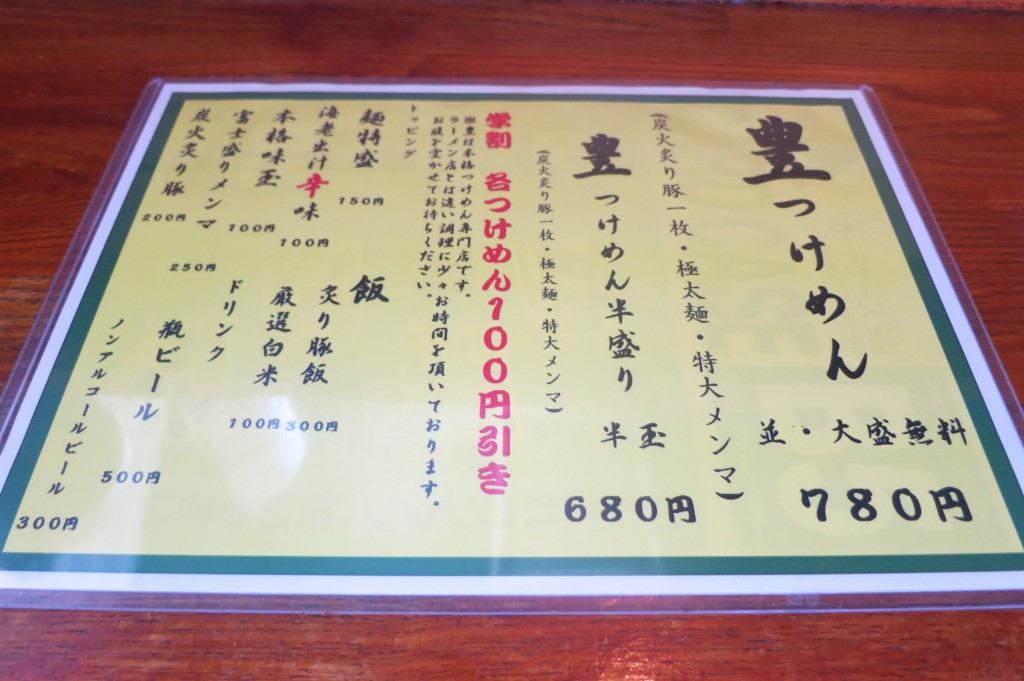 豊つけめん
並・大盛無料
780円
(炭火炙り豚一枚・極太麺・特大メンマ)
豊つけめん半盛り
半玉
680円
(炭火炙り豚一枚・極太麺・特大メンマ)
学割 各つけめん100円引き
楽豊は本格つけめん専門店です。
ラーメン店とは違い調理に少々お時間を頂いております。
お腹を空かせてお待ちください。
トッピング
麺特盛
150円
海老出汁辛味
100円
本格味玉
100円
富士盛りメンマ
250円
炭火炙り豚
200円
飯
炙り豚飯
300円
厳選白米
100円
ドリンク
瓶ビール
500円
ノンアルコールビール
300円